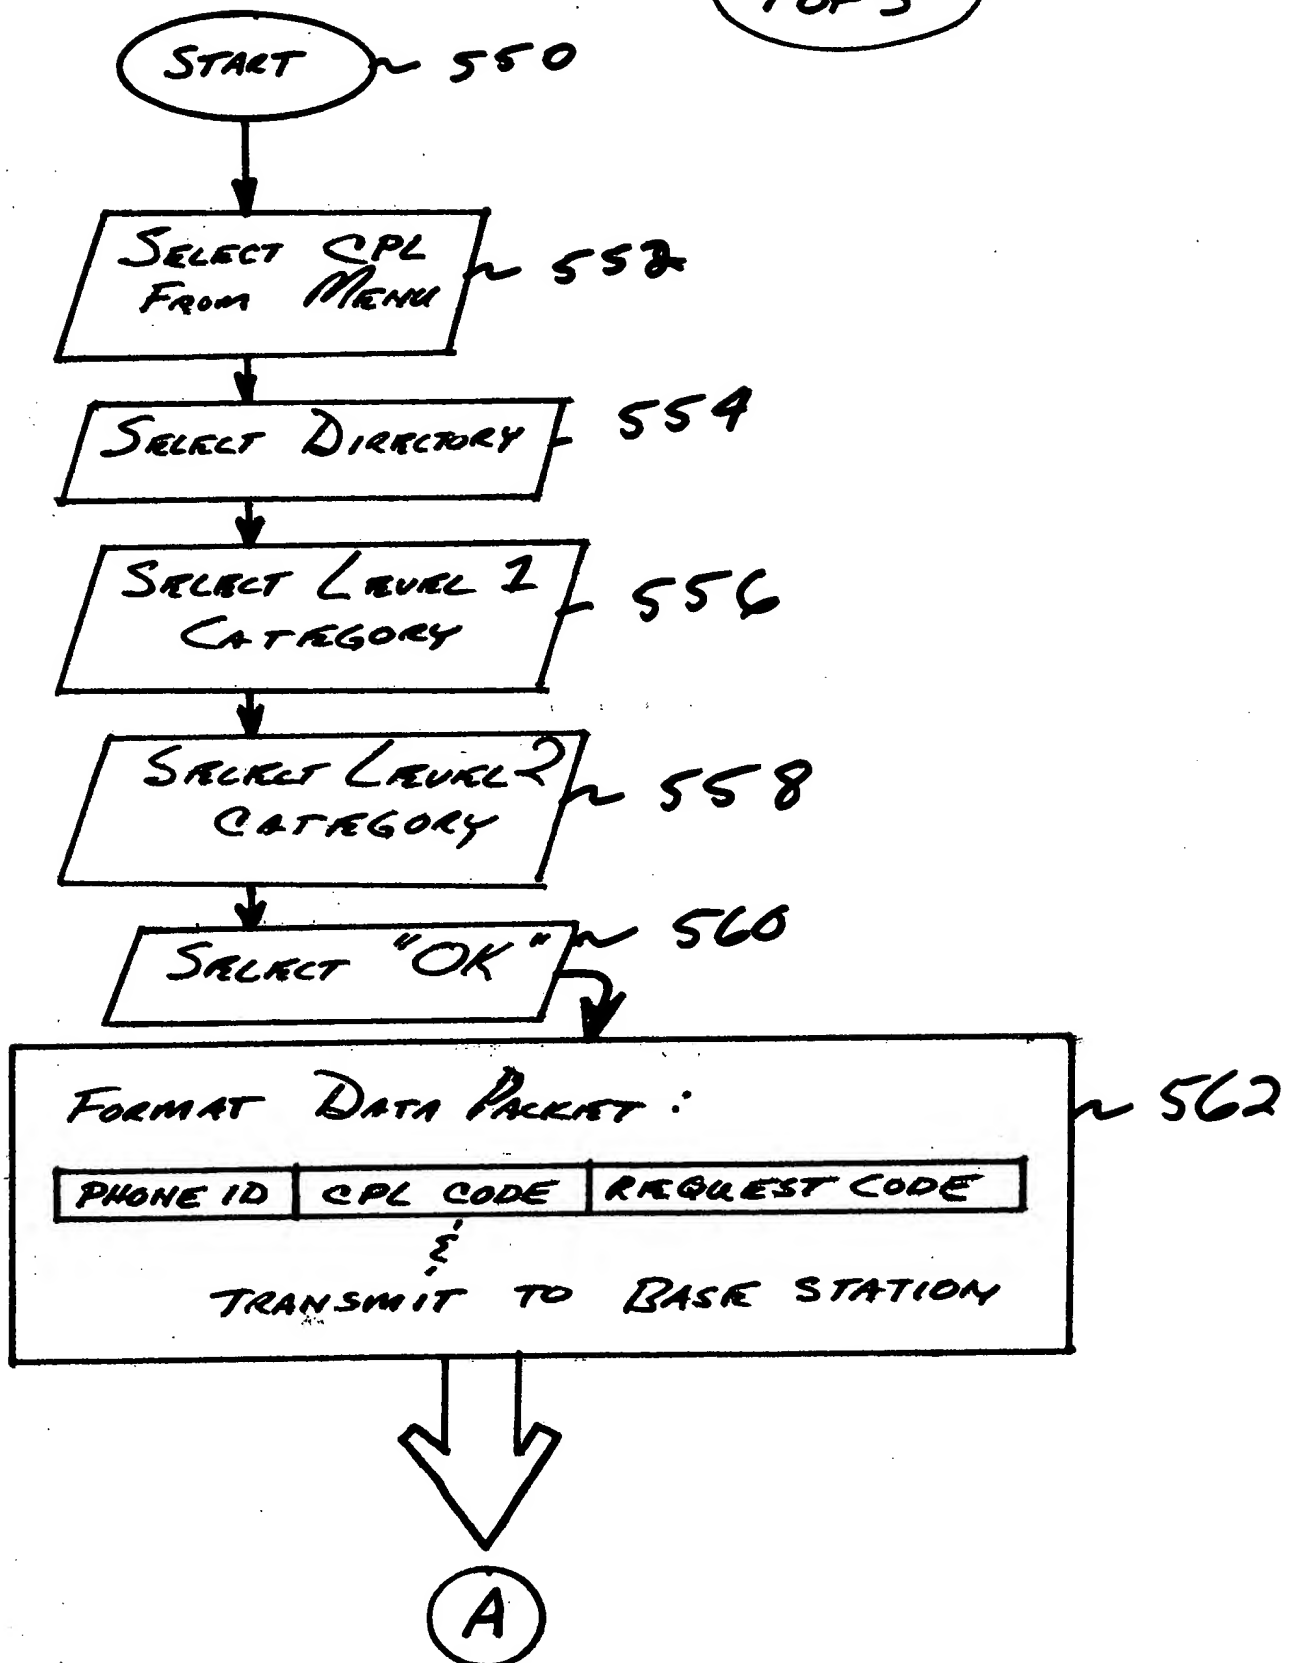 1 OF 3
START 550
SELECT CPL
FROM MENU
552
SELECT DIRECTORY 554
SELECT LEVEL 1
CATEGORY
556
SELECT LEVEL 2
CATEGORY
558
SELECT "OK" 560
FORMAT DATA PACKET :
562
PHONE ID CPL CODE REQUEST CODE
&
TRANSMIT TO BASE STATION
A